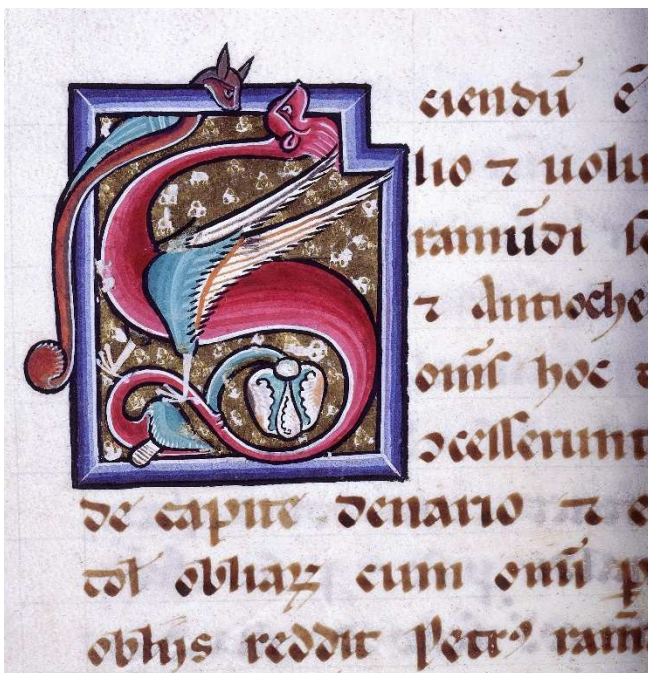 Sciendū ē
lio ⁊ uolu
ramūdi
⁊ Antioche
om̄s hoc
ↄcesserunt
de capite denario ⁊ e
obliaꝝ cum om̄i
oblijs reddit Petrꝰ